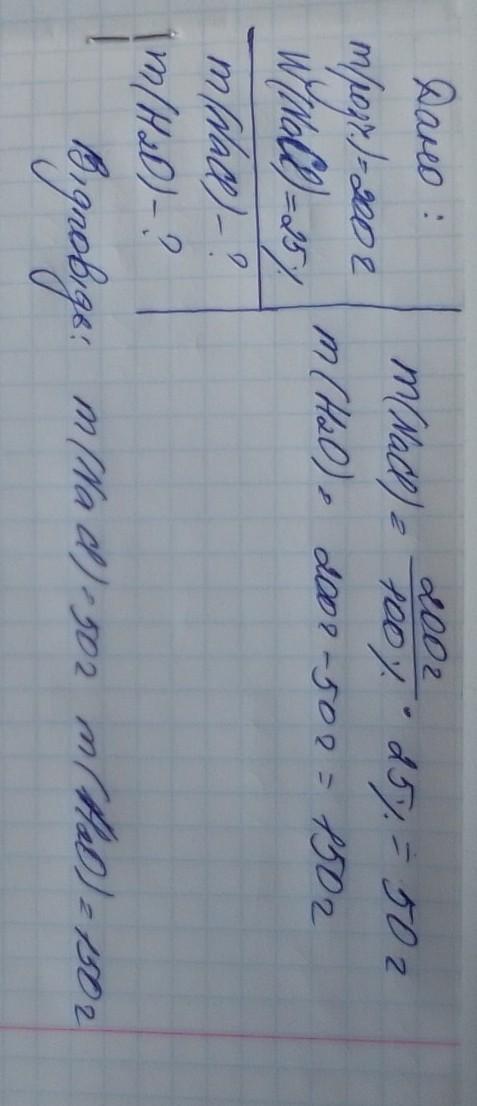 Дано:
m(розч.)=200г
W(NaCl)=25%
m(NaCl)-?
m(H2O)-?
m(NaCl) = 200г/100% · 25% = 50г
m(H2O) = 200г - 50г = 150г
Відповідь: m(NaCl)=50г m(H2O)=150г